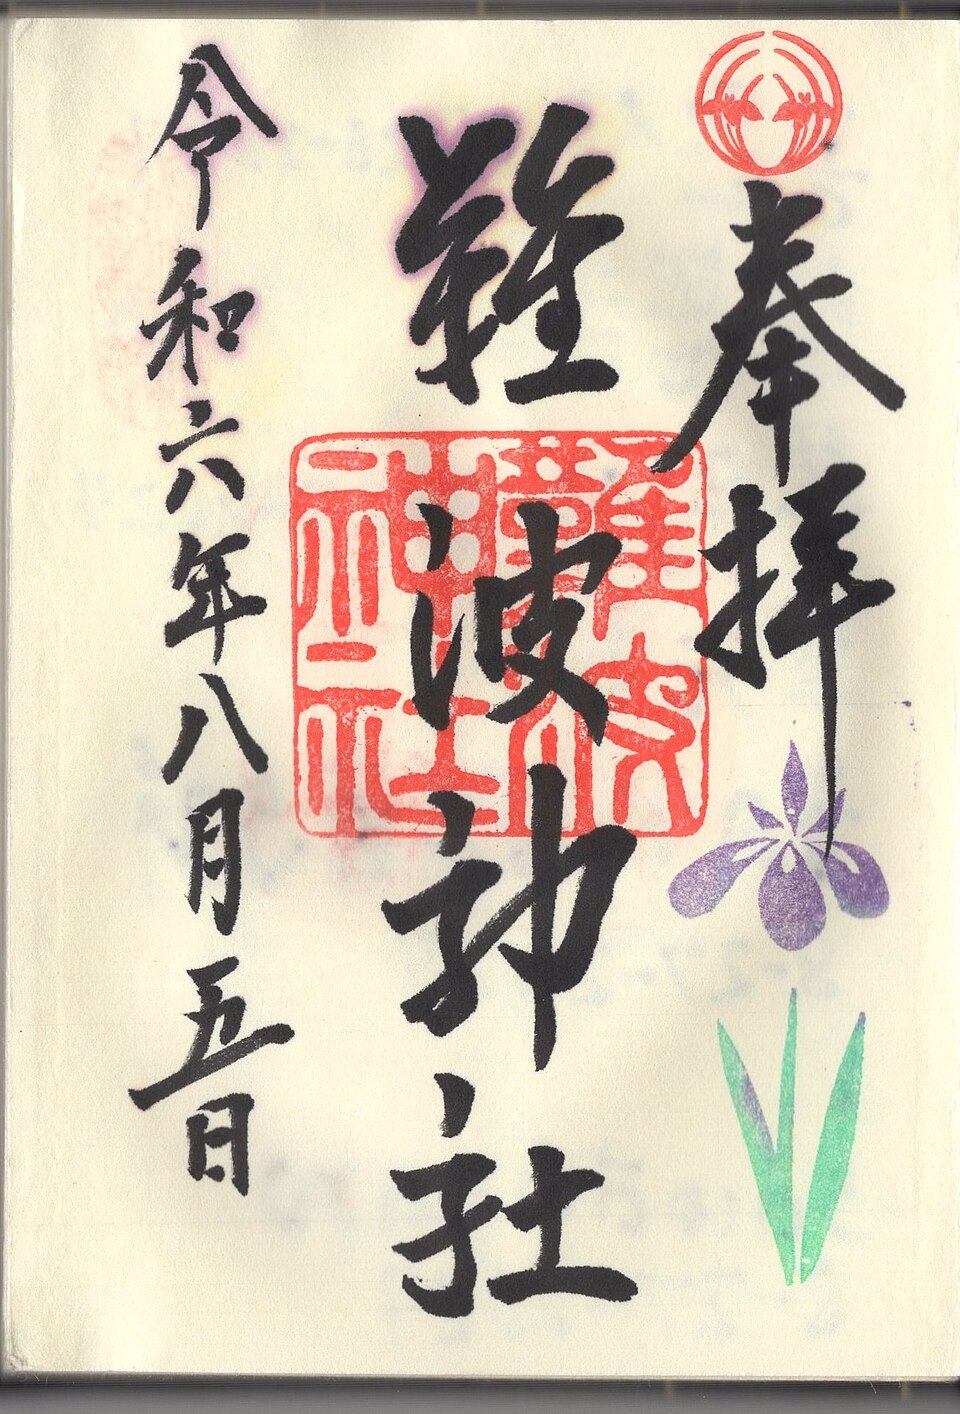 奉拝
難波神社
難波神社
令和六年八月五日